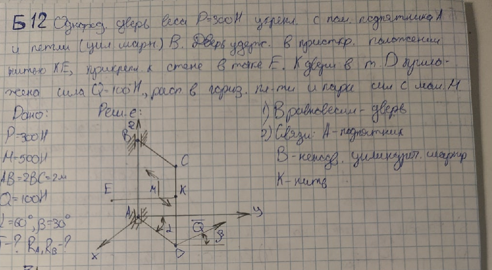 Б12 Однород. дверь веса P=300Н укрепл. с пом. подпятника А
и петли (цил. шарн) В. Дверь удерж. в приоткр. положении
нитью КЕ, прикрепл. к стене в точке Е. К двери в т. D прило-
жена сила Q=100Н, расп. в гориз. пл-ти и пара сил с мом. М
Дано:
P=300Н
M=500Н
AB=2BC=2м
Q=100Н
=60°, β=30°
T-? RA, RB-?
Решен:
1) В равновесии - дверь
2) Связи: А - подпятник
В - неподв. цилиндрич. шарнир
К - нить
z
B
C
M
K
E
A
y
Q
β
α
x
D